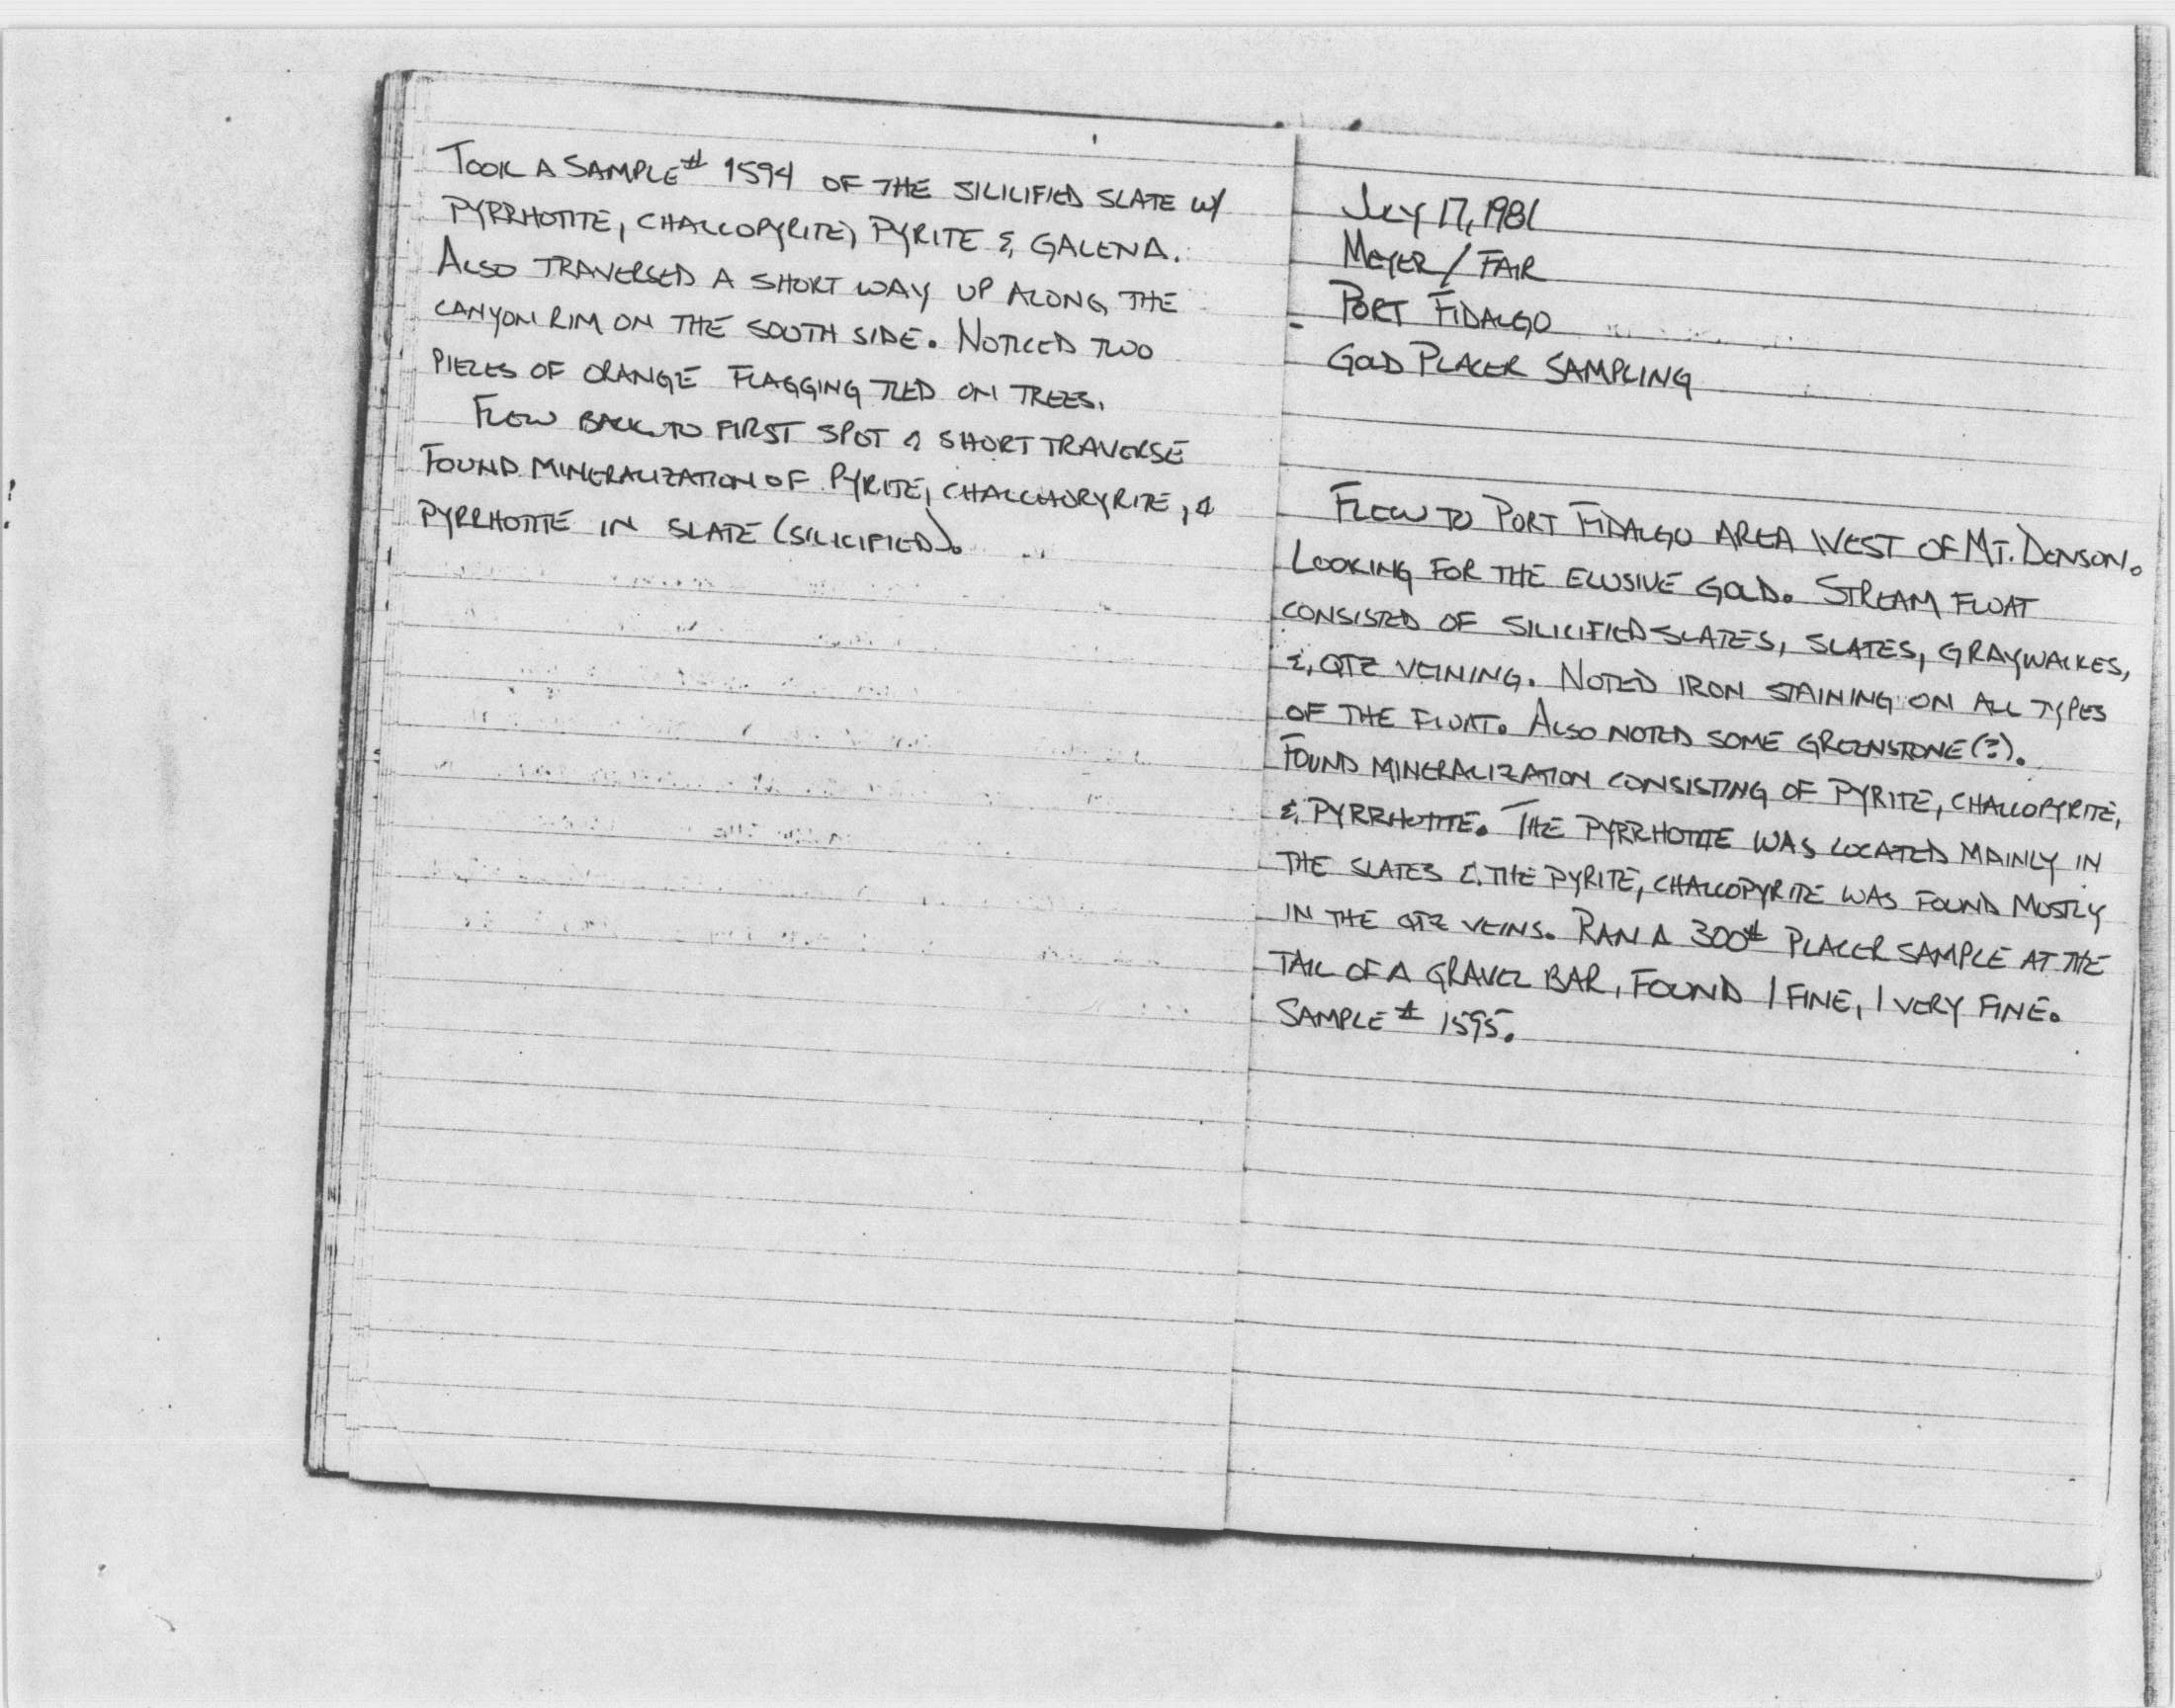 TOOK A SAMPLE # 1594 OF THE SILICIFIED SLATE W/
PYRRHOTITE, CHALCOPYRITE, PYRITE & GALENA.
ALSO TRAVERSED A SHORT WAY UP ALONG THE
CANYON RIM ON THE SOUTH SIDE. NOTICED TWO
PIECES OF ORANGE FLAGGING TIED ON TREES.
FLEW BACK TO FIRST SPOT & SHORT TRAVERSE
FOUND MINERALIZATION OF PYRITE, CHALCHOPYRITE, &
PYRRHOTITE IN SLATE (SILICIFIED).
JULY 17, 1981
MEYER / FAIR
PORT FIDALGO
GOLD PLACER SAMPLING
FLEW TO PORT FIDALGO AREA WEST OF MT. DENSON.
LOOKING FOR THE ELUSIVE GOLD. STREAM FLOAT
CONSISTED OF SILICIFIED SLATES, SLATES, GRAYWACKES,
& QTZ VEINING. NOTED IRON STAINING ON ALL TYPES
OF THE FLOAT. ALSO NOTED SOME GREENSTONE (?).
FOUND MINERALIZATION CONSISTING OF PYRITE, CHALCOPYRITE,
& PYRRHOTITE. THE PYRRHOTITE WAS LOCATED MAINLY IN
THE SLATES & THE PYRITE, CHALCOPYRITE WAS FOUND MOSTLY
IN THE QTZ VEINS. RAN A 300# PLACER SAMPLE AT THE
TAIL OF A GRAVEL BAR, FOUND 1 FINE, 1 VERY FINE.
SAMPLE # 1595.